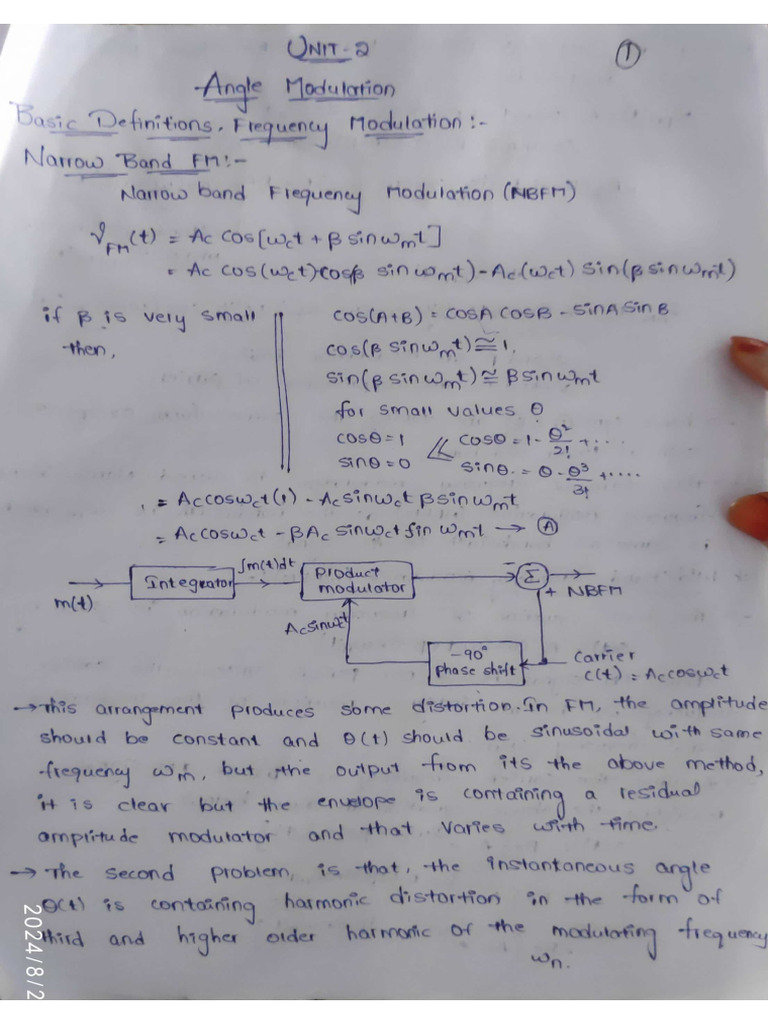 UNIT-2
1
Angle Modulation
Basic Definitions, Frequency Modulation:-
Narrow Band FM:-
Narrow band Frequency Modulation (NBFM)
V_FM(t) = Ac cos[ωct + β sin ωmt]
= Ac cos(ωct) cos(β sin ωmt) - Ac(ωct) sin(β sin ωmt)
if β is very small
then,
cos(A+B) = cosA cosB - sinA sinB
cos(β sin ωmt) ≅ 1,
sin(β sin ωmt) ≅ β sin ωmt
for small values θ
cosθ = 1
sinθ = 0
cosθ = 1 - θ²/2! + ...
sinθ = θ - θ³/3! + ....
= Ac cos ωct (1) - Ac sin ωct β sin ωmt
= Ac cos ωct - βAc sin ωct sin ωmt → A
m(t)
Integrator
∫m(t)dt
Product modulator
- Σ +
NBFM
Ac sin ωct
-90° Phase shift
Carrier
C(t) = Ac cos ωct
→ This arrangement produces some distortion. In FM, the amplitude
should be constant and θ(t) should be sinusoidal with same
frequency ωm, but the output from its the above method,
it is clear but the envelope is containing a residual
amplitude modulator and that varies with time.
→ The second problem, is that, the instantaneous angle
θ(t) is containing harmonic distortion in the form of
third and higher order harmonic of the modulating frequency
ωn.
2024/8/2